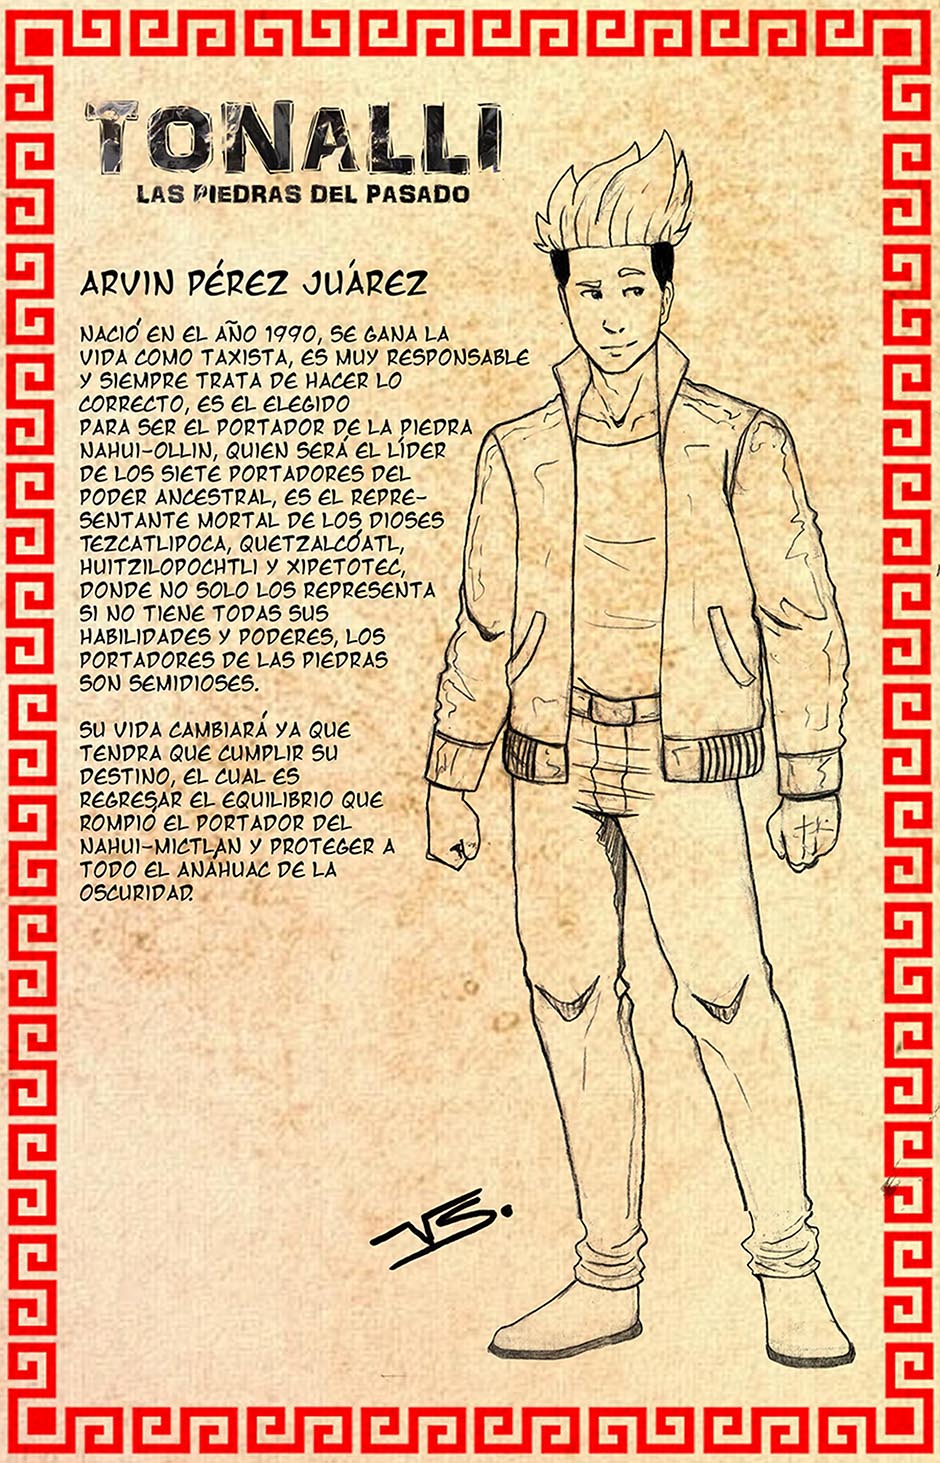 TONALLI
LAS PIEDRAS DEL PASADO
ARVIN PÉREZ JUÁREZ
NACIÓ EN EL AÑO 1990, SE GANA LA
VIDA COMO TAXISTA, ES MUY RESPONSABLE
Y SIEMPRE TRATA DE HACER LO
CORRECTO, ES EL ELEGIDO
PARA SER EL PORTADOR DE LA PIEDRA
NAHUI-OLLIN, QUIEN SERÁ EL LÍDER
DE LOS SIETE PORTADORES DEL
PODER ANCESTRAL, ES EL REPRE-
SENTANTE MORTAL DE LOS DIOSES
TEZCATLIPOCA, QUETZALCÓATL,
HUITZILOPOCHTLI Y XIPETOTEC,
DONDE NO SOLO LOS REPRESENTA
SI NO TIENE TODAS SUS
HABILIDADES Y PODERES, LOS
PORTADORES DE LAS PIEDRAS
SON SEMIDIOSES.
SU VIDA CAMBIARÁ YA QUE
TENDRA QUE CUMPLIR SU
DESTINO, EL CUAL ES
REGRESAR EL EQUILIBRIO QUE
ROMPIÓ EL PORTADOR DEL
NAHUI-MICTLAN Y PROTEGER A
TODO EL ANÁHUAC DE LA
OSCURIDAD.
VS.